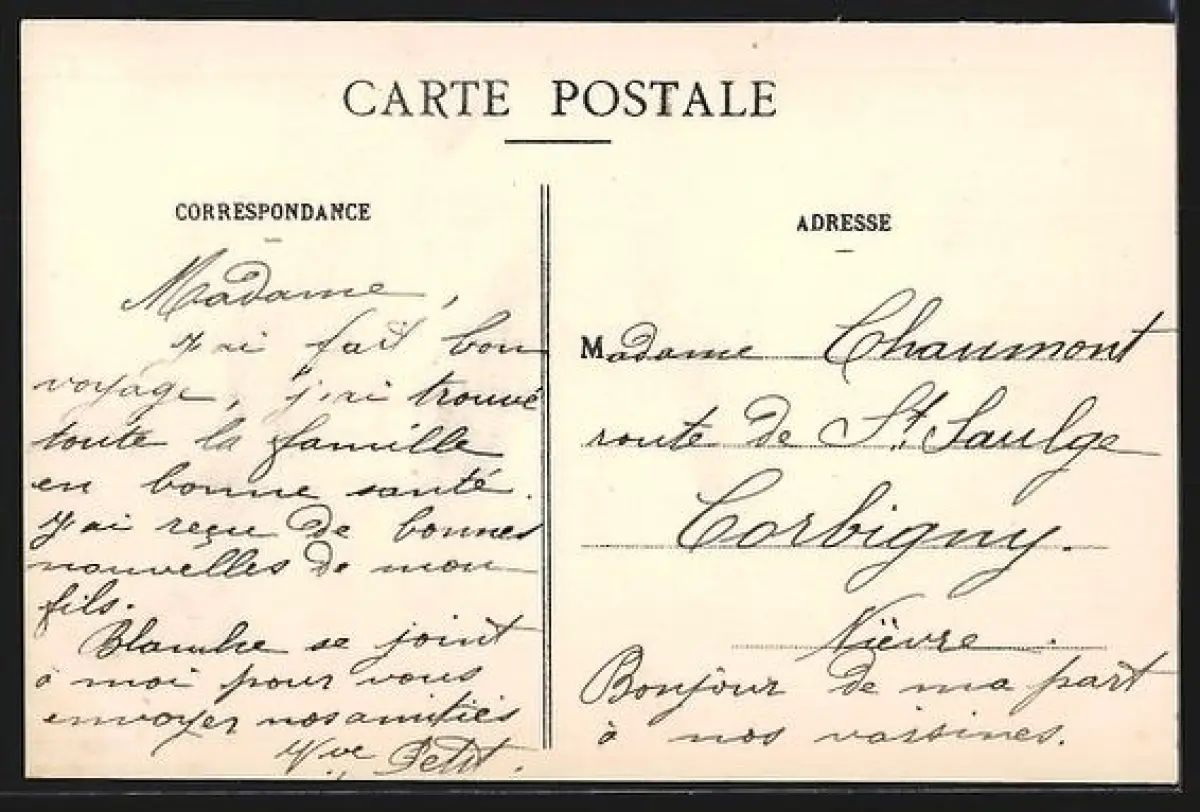 CARTE POSTALE
CORRESPONDANCE
Madame,
J'ai fait bon
voyage, j'ai trouvé
toute la famille
en bonne santé.
J'ai reçu de bonnes
nouvelles de mon
fils.
Blanche se joint
à moi pour vous
envoyer nos amitiés
Vve Petit.
ADRESSE
Madame Chaumont
route de St. Saulge
Corbigny.
Nièvre.
Bonjour de ma part
à nos voisines.